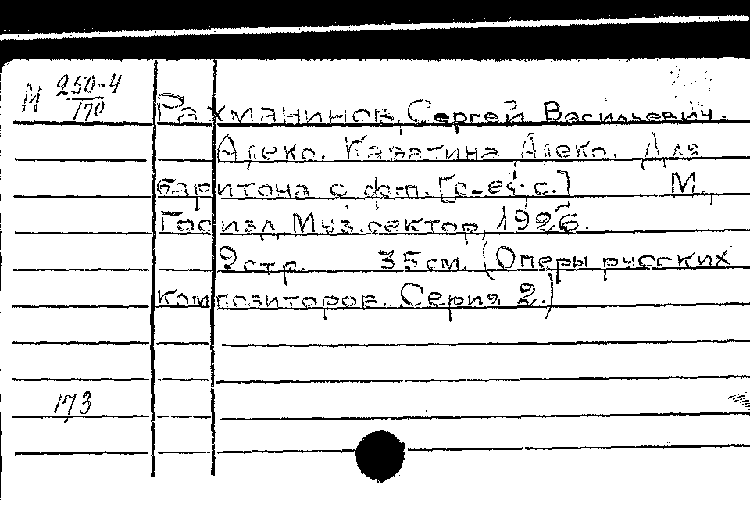 М 250-4/170
Рахманинов, Сергей Васильевич.
Алеко. Каватина Алеко. Для
баритона с ф-п. [c-es¹; c.] М.,
Госизд. Муз. сектор, 1926.
9 стр. 35 см. (Оперы русских
композиторов. Серия 2.)
173